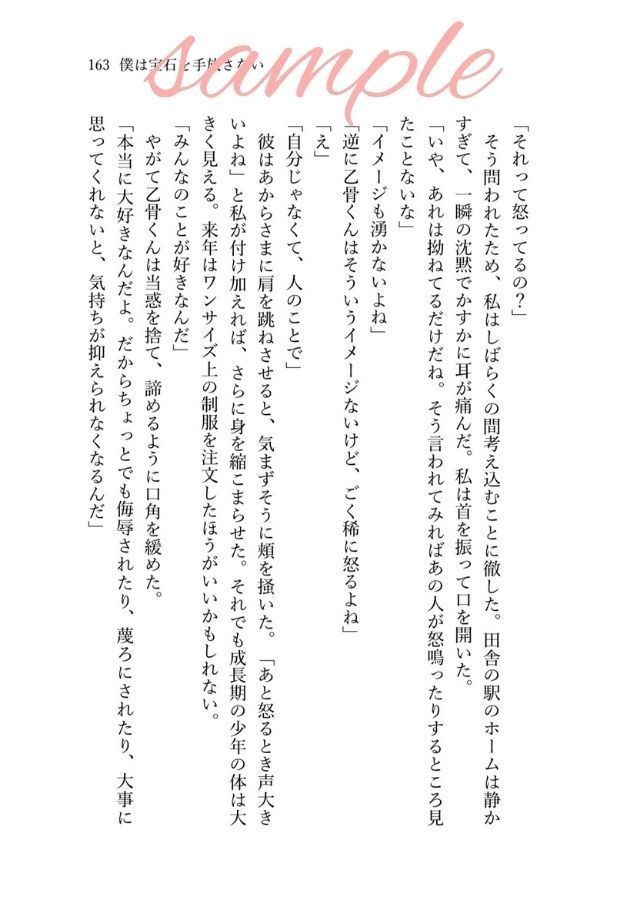 sample
163 僕は宝石を手放さない
「それって怒ってるの？」
そう問われたため、私はしばらくの間考え込むことに徹した。田舎の駅のホームは静か
すぎて、一瞬の沈黙でかすかに耳が痛んだ。私は首を振って口を開いた。
「いや、あれは拗ねてるだけだね。そう言われてみればあの人が怒鳴ったりするところ見
たことないな」
「イメージも湧かないよね」
「逆に乙骨くんはそういうイメージないけど、ごく稀に怒るよね」
「え」
「自分じゃなくて、人のことで」
彼はあからさまに肩を跳ねさせると、気まずそうに頬を掻いた。「あと怒るとき声大き
いよね」と私が付け加えれば、さらに身を縮こまらせた。それでも成長期の少年の体は大
きく見える。来年はワンサイズ上の制服を注文したほうがいいかもしれない。
「みんなのことが好きなんだ」
やがて乙骨くんは当惑を捨て、諦めるように口角を緩めた。
「本当に大好きなんだよ。だからちょっとでも侮辱されたり、蔑ろにされたり、大事に
思ってくれないと、気持ちが抑えられなくなるんだ」